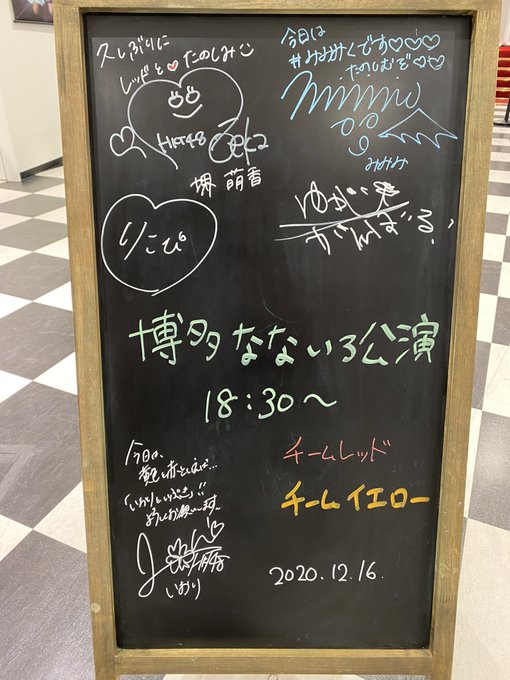 久しぶりに
レッドと♡たのしみ
HKT48
堺 萌香
今日は
#みみみくです♡♡♡
たのしむぞ♡♡
mimimi
みみみ
りこぴ
ゆかり
がんばる!
博多なないろ公演
18:30〜
今日は、
「いおりといぶき」!!
よろしくお願いします。
いおり
チームレッド
チームイエロー
2020.12.16.